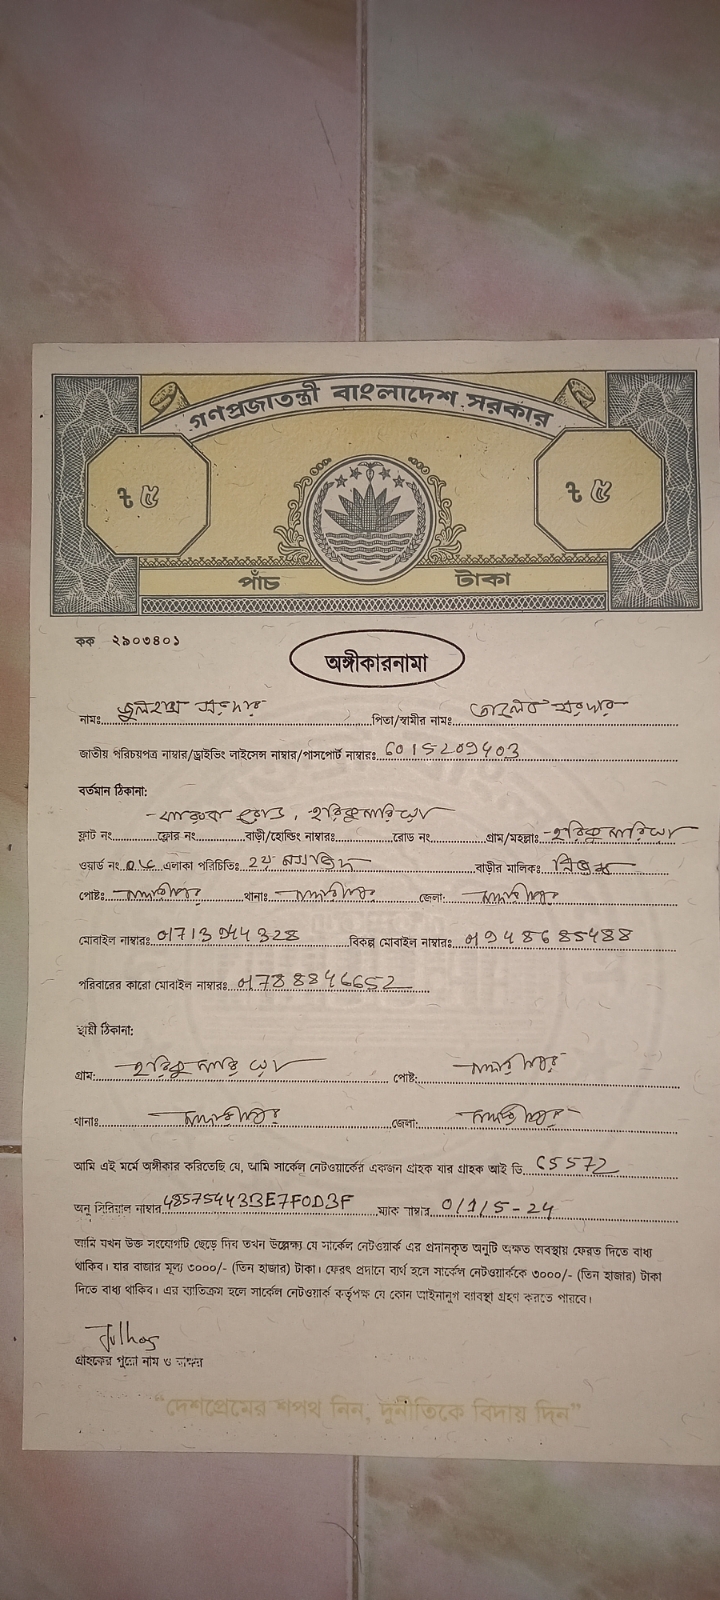 গণপ্রজাতন্ত্রী বাংলাদেশ সরকার
৳ ৫ ৳ ৫
পাঁচ টাকা
কক ২৯০৩৪০১
অঙ্গীকারনামা
নামঃ সরদার পিতা/স্বামীর নামঃ তালেব সরদার
জাতীয় পরিচয়পত্র নাম্বার/ড্রাইভিং লাইসেন্স নাম্বার/পাসপোর্ট নাম্বারঃ 6015209403
বর্তমান ঠিকানা:
রোড, হরিকুমারিয়া
ফ্লাট নং ফ্লোর নং বাড়ী/হোল্ডিং নাম্বারঃ রোড নং গ্রাম/মহল্লাঃ হরিকুমারিয়া
ওয়ার্ড নং এলাকা পরিচিতিঃ মসজিদ বাড়ীর মালিকঃ নিজস্ব
পোষ্টঃ মাদারীপুর থানাঃ মাদারীপুর জেলাঃ মাদারীপুর
মোবাইল নাম্বারঃ 01713944328 বিকল্প মোবাইল নাম্বারঃ 01948685488
পরিবারের কারো মোবাইল নাম্বারঃ 01788846652
স্থায়ী ঠিকানা:
গ্রাম: হরিকুমারিয়া পোষ্ট: মাদারীপুর
থানাঃ মাদারীপুর জেলা: মাদারীপুর
আমি এই মর্মে অঙ্গীকার করিতেছি যে, আমি সার্কেল নেটওয়ার্কের একজন গ্রাহক যার গ্রাহক আই ডি C5572
অনু সিরিয়াল নাম্বার 485754433E7F0D3F ম্যাক নাম্বার 0/1/5-24
আমি যখন উক্ত সংযোগটি ছেড়ে দিব তখন উল্লেক্ষ্য যে সার্কেল নেটওয়ার্ক এর প্রদানকৃত অনুটি অক্ষত অবস্থায় ফেরত দিতে বাধ্য
থাকিব। যার বাজার মূল্য ৩০০০/- (তিন হাজার) টাকা। ফেরৎ প্রদানে ব্যর্থ হলে সার্কেল নেটওয়ার্ককে ৩০০০/- (তিন হাজার) টাকা
দিতে বাধ্য থাকিব। এর ব্যতিক্রম হলে সার্কেল নেটওয়ার্ক কর্তৃপক্ষ যে কোন আইনানুগ ব্যবস্থা গ্রহণ করতে পারবে।
Julhas
গ্রাহকের পুরো নাম ও স্বাক্ষর
“দেশপ্রেমের শপথ নিন, দুর্নীতিকে বিদায় দিন”